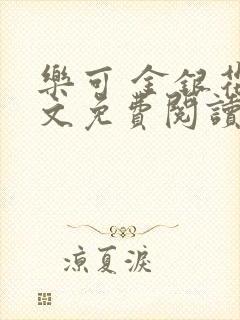 樂可 金銀花
文免費閱讀
凉夏淚